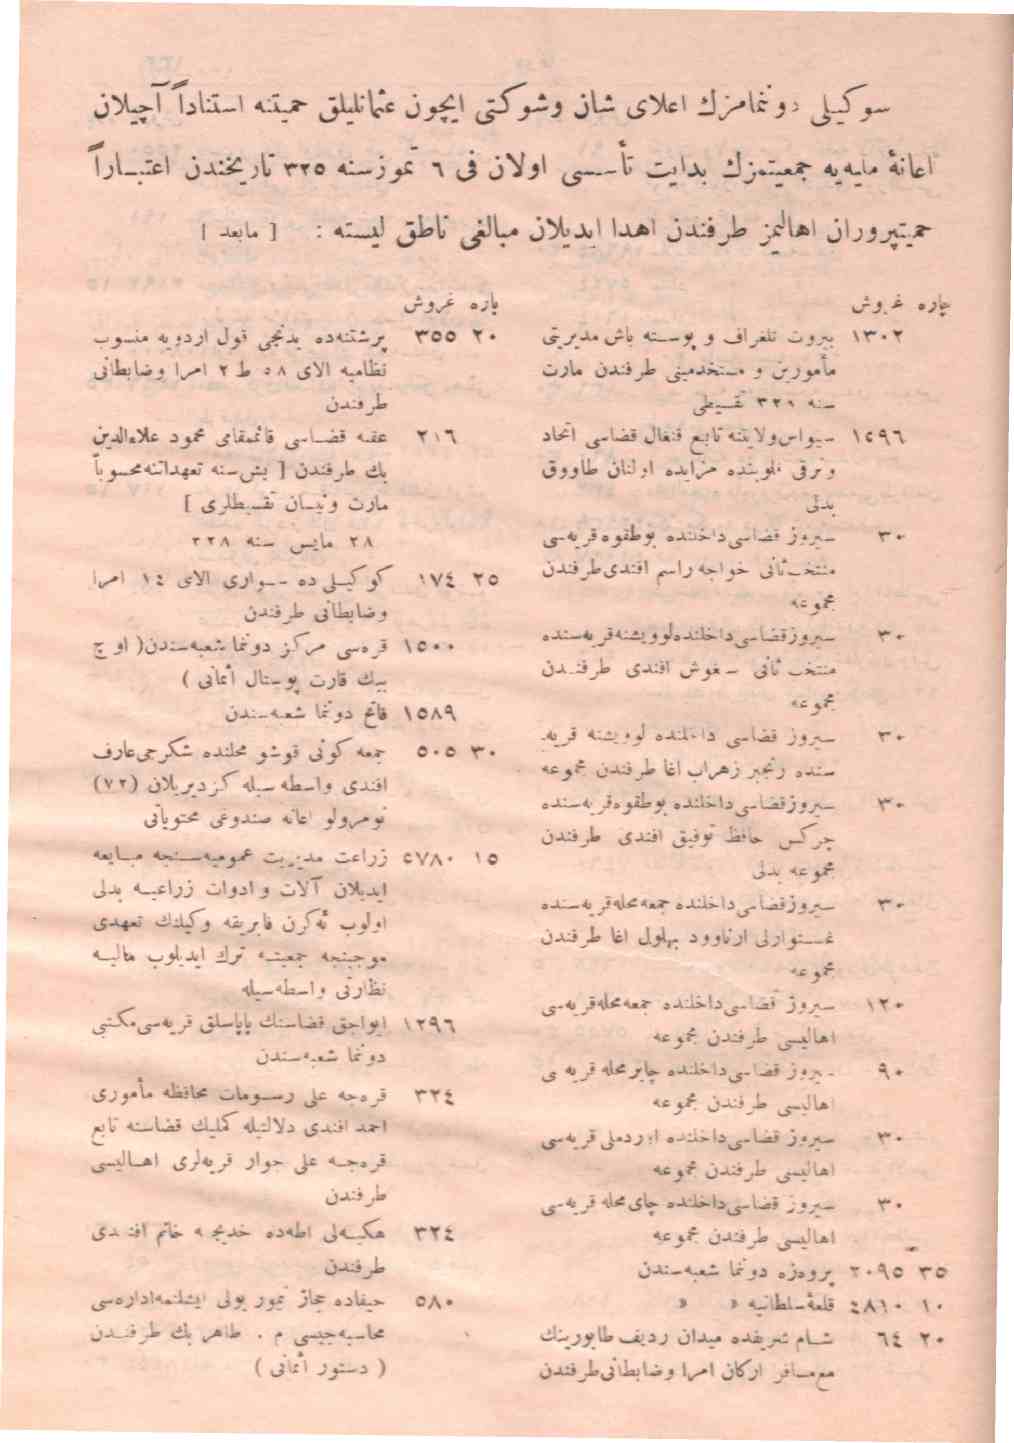 سوكيلی دوننمامزك اعلای شان وشوكتی ايچون عثمانليلق حميتنه استناداً آچيلان
اعانۀ ماليه‌يه جمعيتمزك بدايت تأسسی اولان فی ٦ تموزسنه ٣٢٥ تاريخندن اعتباراً
حميتپروران اهاليمز طرفندن اهدا ايديلان مبالغی ناطق ليسته : [ مابعد ]
پاره غروش
١٣٠٢ بيروت تلغراف و پوسته باش مديريتی
مأمورين و مستخدمينی طرفندن مارت
سنه ٣٢٨ تقسيطی
١٤٩٦ سيواس‌ولايتنه تابع قنغال قضاسی اتحاد
وترقی قلوبنده مزايده اولنان طاووق
بدلی
٣٠ سيروز قضاسی‌داخلنده بوطقوه قريه‌سی
منتخب‌ثانی خواجه راسم افندی‌طرفندن
مجموعه
٣٠ سيروزقضاسی‌داخلنده‌لوويشنه‌قريه‌سنده
منتخب ثانی سغوش افندی طرفندن
مجموعه
٣٠ سيروز قضاسی داخلنده لوويشنه قريه‌
سنده رنجبر زهراب اغا طرفندن مجموعه
٣٠ سيروزقضاسی‌داخلنده بوطقوه‌قريه‌سنده
چركس حافظ توفيق افندی طرفندن
مجموعه بدلی
٣٠ سيروزقضاسی‌داخلنده جمعه‌محله‌قريه‌سنده
غستوارلی ارناوود بهلول اغا طرفندن
مجموعه
١٢٠ سيروز قضاسی‌داخلنده جمعه‌محله‌قريه‌سی
اهاليسی طرفندن مجموعه
٩٠ سيروز قضاسی‌داخلنده چاير محله قريه‌سی
اهاليسی طرفندن مجموعه
٣٠ سيروز قضاسی‌داخلنده قريه‌سی
اهاليسی طرفندن مجموعه
٣٠ سيروز قضاسی‌داخلنده چای‌محله قريه‌سی
اهاليسی طرفندن مجموعه
٣٥ ٢٠٩٥ پروه‌زه دوننما شعبه‌سندن
١٠ ٤٨١٠ قلعۀ‌سلطانيه » »
٢٠ ٦٤ شام شريفده ميدان رديف طابورينك
مع‌مسافر اركان امرا وضابطانی‌طرفندن
پاره غروش
٢٠ ٣٥٥ پرشتنه‌ده يدنجی قول اردويه منسوب
نظاميه الای ٥٨ ط ٢ امرا وضابطانی
طرفندن
٢١٦ عقبه قضاسی قائمقامی محمود علاءالدين
بك طرفندن [ بش‌سنه تعهداتنه‌محسوباً
مارت ونيسان تقسيطلری ]
٢٨ مايس سنه ٣٢٨
٢٥ ١٧٤ كوكيلی ده سواری الای ١٤ امرا
وضابطانی طرفندن
١٥٠٠ قره‌سی مركز دوننما شعبه‌سندن( اوچ
بيك قارت پوستال اثمانی )
١٥٨٩ فاتح دوننما شعبه‌سندن
٣٠ ٥٠٥ جمعه كونی قوشو محلنده شكرجی‌عارف
افندی واسطه‌سيله كزديريلان (٧٢)
نومرولو اعانه صندوغی محتوياتی
١٥ ٤٧٨٠ زراعت مديريت عموميه‌سنجه مبايعه
ايديلان آلات وادوات زراعيه بدلی
اولوب فابريقه وكيلنك تعهدی
موجبنجه جمعيته ترك ايديلوب ماليه
نظارتی واسطه‌سيله
١٢٩٦ ايواجق قضاسنك پاپاسلق قريه‌سی‌مكتبی
دوننما شعبه‌سندن
٣٢٤ قره‌جه علی رسومات محافظه مأموری
احمد افندی دلالتيله كمليك قضاسنه تابع
قره‌جه علی جوار قريه‌لری اهاليسی
طرفندن
٣٢٤ هكبه‌لی اطه‌ده خديجه خانم افندی
طرفندن
٥٨٠ حيفاده حجاز تيمور يولی ايشلتمه‌اداره‌سی
محاسبه‌جيسی م . طاهر بك طرفندن
( دستور اثمانی )